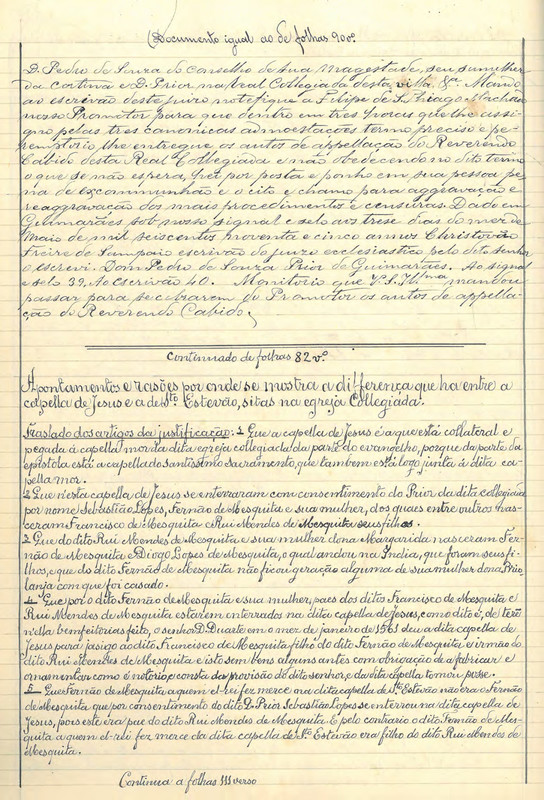 (Documento igual ao de folhas 90 vº
D. Pedro de Souza do conselho de Sua Magestade, seu sumilher
da cortina e D. Prior na real Collegiada desta villa &ª. Mando
ao escrivão deste juizo notefique a Filipe de S. Thiago Machado
nosso Promotor para que dentro em tres horas que lhe assi-
gno pelas tres canonicas admoestações termo preciso e pe-
remptorio lhe entregue os autos de appellação do Reverendo
Cabido desta Real Collegiada e não obedecendo no dito termo
o que se não espera, hei por posta e ponho em sua pessoa pe-
na de excommunhão e o cito e chamo para aggravação e
reaggravação dos mais procedimentos e censuras. Dado em
Guimarães sob nosso signal e selo aos trese dias do mez de
Maio de mil seiscentos noventa e cinco annos Christovão
Freire de Sampaio escrivão do juizo ecclesiastico pelo dito senhor
o escrevi. Dom Pedro de Souza Prior de Guimarães. Ao signal
e selo 39, Ao escrivão 40. Monitorio que V. S. Illma mandou
passar para se cobrarem do Promotor os autos de appella-
ção do Reverendo Cabido.
Continuado de folhas 82 vº.
Apontamentos e rasões por onde se mostra a differença que ha entre a
capella de Jesus e a de Stº Estevão, sitas na egreja Collegiada.
Traslado dos artigos da justificação: 1 Que a capella de Jesus é a que está collateral e
pegada á capella mor da dita egreja collegiada da parte do evangelho, porque da parte da
epistola está a capella do santissimo sacramento, que tambem está logo junta á dita ca-
pella mor.
2 Que nesta capella de Jesus se enterraram com consentimento do Prior da dita collegiada
por nome Sebastião Lopes, Fernão de Mesquita e sua mulher, dos quaes entre outros nas-
ceram Francisco de Mesquita e Rui Mendes de Mesquita seus filhos.
3 Que do dito Rui Mendes de Mesquita e sua mulher dona Margarida nasceram Fer-
não de Mesquita e Diogo Lopes de Mesquita, o qual andou na India, que foram seus fi-
lhos, e que do dito Fernão de Mesquita não ficou geração alguma de sua mulher dona Brio-
lanja com que foi casado.
4 Que por o dito Fernão de Mesquita e sua mulher, paes dos ditos Francisco de Mesquita e
Rui Mendes de Mesquita estarem interrados na dita capella de Jesus, como dito é, de terem
n'ella bemfeitorias feito, o senhor D. Duarte em o mez de janeiro de 1563 deu a dita capella de
Jesus para jasigo ao dito Francisco de Mesquita filho do dito Fernão de Mesquita e irmão do
dito Rui Mendes de Mesquita e isto sem bens alguns antes com obrigação de a fabricar e
ornamentar como é notorio, e consta da provisão do dito senhor, e da dita capella tomou posse.
5 Que Fernão de Mesquita a quem el-rei fez merce na dita capella de Stº Estevão não era o Fernão
de Mesquita que por consentimento do dito D. Prior Sebastião Lopes se interrou na dita capella de
Jesus, pois este era pae do dito Rui Mendes de Mesquita. E pelo contrario o dito Fernão de Mes-
quita a quem el-rei fez merce da dita capella de Stº Estevão era filho do dito Rui Mendes de
Mesquita.
Continua a folhas 111 verso